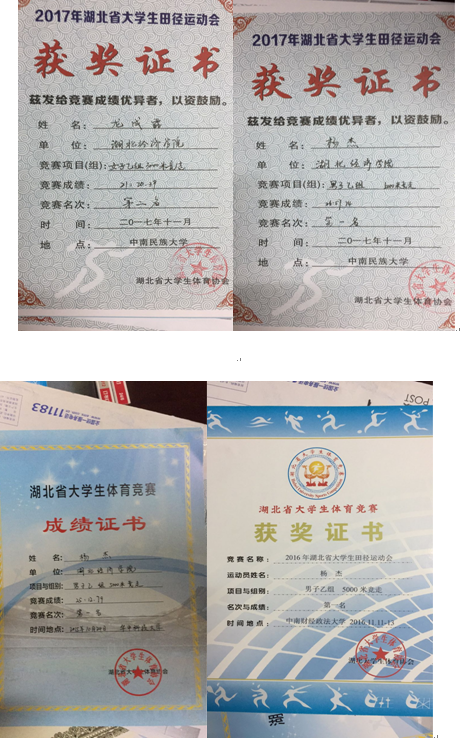 2017年湖北省大学生田径运动会
获奖证书
兹发给竞赛成绩优异者，以资鼓励。
姓 名：
单 位：湖北经济学院
竞赛项目(组)：女子乙组
竞赛成绩：
竞赛名次：第二名
时 间：二〇一七年十一月
地 点：中南民族大学
湖北省大学生体育协会
2017年湖北省大学生田径运动会
获奖证书
兹发给竞赛成绩优异者，以资鼓励。
姓 名：杨杰
单 位：湖北经济学院
竞赛项目(组)：男子乙组
竞赛成绩：
竞赛名次：第一名
时 间：二〇一七年十一月
地 点：中南民族大学
湖北省大学生体育协会
11183
湖北省大学生体育竞赛
成绩证书
姓 名：杨杰
单 位：湖北经济学院
项目与组别：男子乙组 5000米竞走
竞赛成绩：
竞赛名次：第一名
时间地点：
湖北省大学生体育协会
POST
湖北省大学生体育竞赛
获奖证书
竞赛名称：2016年湖北省大学生田径运动会
运动员姓名：杨 杰
项目与组别：男子乙组 5000米竞走
名次与成绩：第一名
时间地点：中南财经政法大学 2016.11.11-13
湖北省大学生体育协会